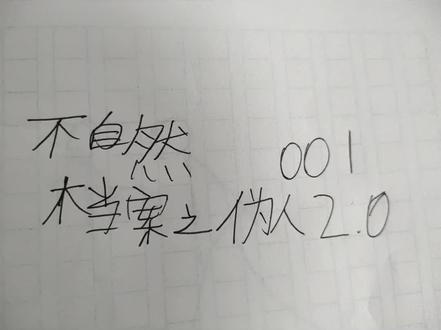 不自然 001
木当案之伪人2.0